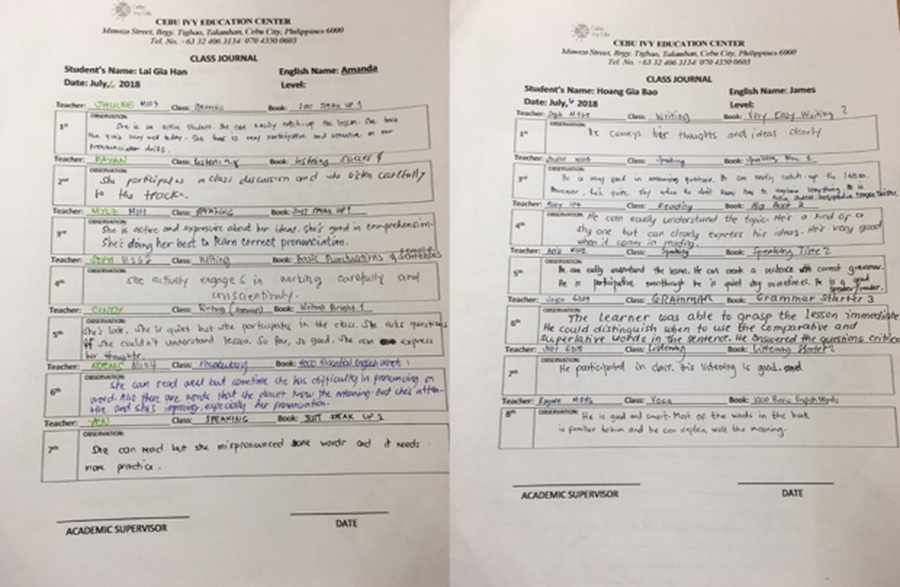 Cebu
Ivy Edu
CEBU IVY EDUCATION CENTER
Mimoza Street, Brgy. Tigbao, Talamban, Cebu City, Philippines 6000
Tel. No. +63 32 406 3134/ 070 4350 0603
CLASS JOURNAL
Student's Name: Lai Gia Han English Name: Amanda
Date: July, 2018 Level:
Teacher: JHULEE Class: SPEAKING Book: JUST SPEAK UP 1
OBSERVATION:
1st She is an active student. She can easily catch-up the lesson. She took
the quiz very well today. She is very participative and attentive in our
pronunciation drills.
Teacher: Class: Listening Book: Listening
OBSERVATION:
2nd She participates in class discussion and listen carefully
to the track.
Teacher: MYLE Class: SPEAKING Book: JUST SPEAK UP 1
OBSERVATION:
3rd She is active and expressive about her ideas. She's good in comprehension.
She's doing her best to learn correct pronunciation.
Teacher: Class: Writing Book: Basic Punctuations & Sentences
OBSERVATION:
4th She actively engages in working carefully and
Teacher: CINDY Class: Writing Book: Writing Bright 1
OBSERVATION:
5th She's late. She is quiet but she participates in the class. She asks questions
if she couldn't understand lesson. So far, so good. She can express
her thoughts.
Teacher: Class: Vocabulary Book: 4000 Essential English Words 1
OBSERVATION:
6th She can read well but sometime she has difficulty in pronuncing a
word. Also there are words that she doesn't know the meaning. But she's atten-
tive and she's improving especially her pronunciation.
Teacher: Class: SPEAKING Book: JUST SPEAK UP 1
OBSERVATION:
7th She can read but she mispronounced some words and it needs
more practice.
ACADEMIC SUPERVISOR DATE
CEBU IVY EDUCATION CENTER
Mimoza Street, Brgy. Tigbao, Talamban, Cebu City, Philippines 6000
Tel. No. +63 32 406 3134/ 070 4350 0603
CLASS JOURNAL
Student's Name: Hoang Gia Bao English Name: James
Date: July, 2018 Level:
Teacher: Class: Writing Book: Very Easy Writing 2
OBSERVATION:
1st He conveys his thoughts and ideas clearly
Teacher: Class: Speaking Book: Speaking Time 2
OBSERVATION:
3rd He is very good in answering questions. He can easily catch-up the lesson.
However, he's quite shy when he don't know how to explain something. He is
Teacher: Class: Reading Book: Big Book 2
OBSERVATION:
4th He can easily understand the topic. He's a kind of a
shy one but can clearly express his ideas. He's very good
when it comes in reading.
Teacher: Class: Speaking Book: Speaking Time 2
OBSERVATION:
5th He can easily understand the lesson. He can create a sentence with correct grammar.
He is participative eventhough he is quiet shy sometimes. He is a good
speaker/reader.
Teacher: Class: GRAMMAR Book: Grammar Starter 3
OBSERVATION:
6th The learner was able to grasp the lesson immediate
He could distinguish when to use the comparative and
superlative words in the sentence. He answered the questions critica
Teacher: Class: Listening Book: Listening
OBSERVATION:
7th He participated in class. His listening is good.
Teacher: Class: Voca Book: 1000 Basic English Words
OBSERVATION:
8th He is good and smart. Most of the words in the book
is familiar to him and he can explain well the meaning.
ACADEMIC SUPERVISOR DATE